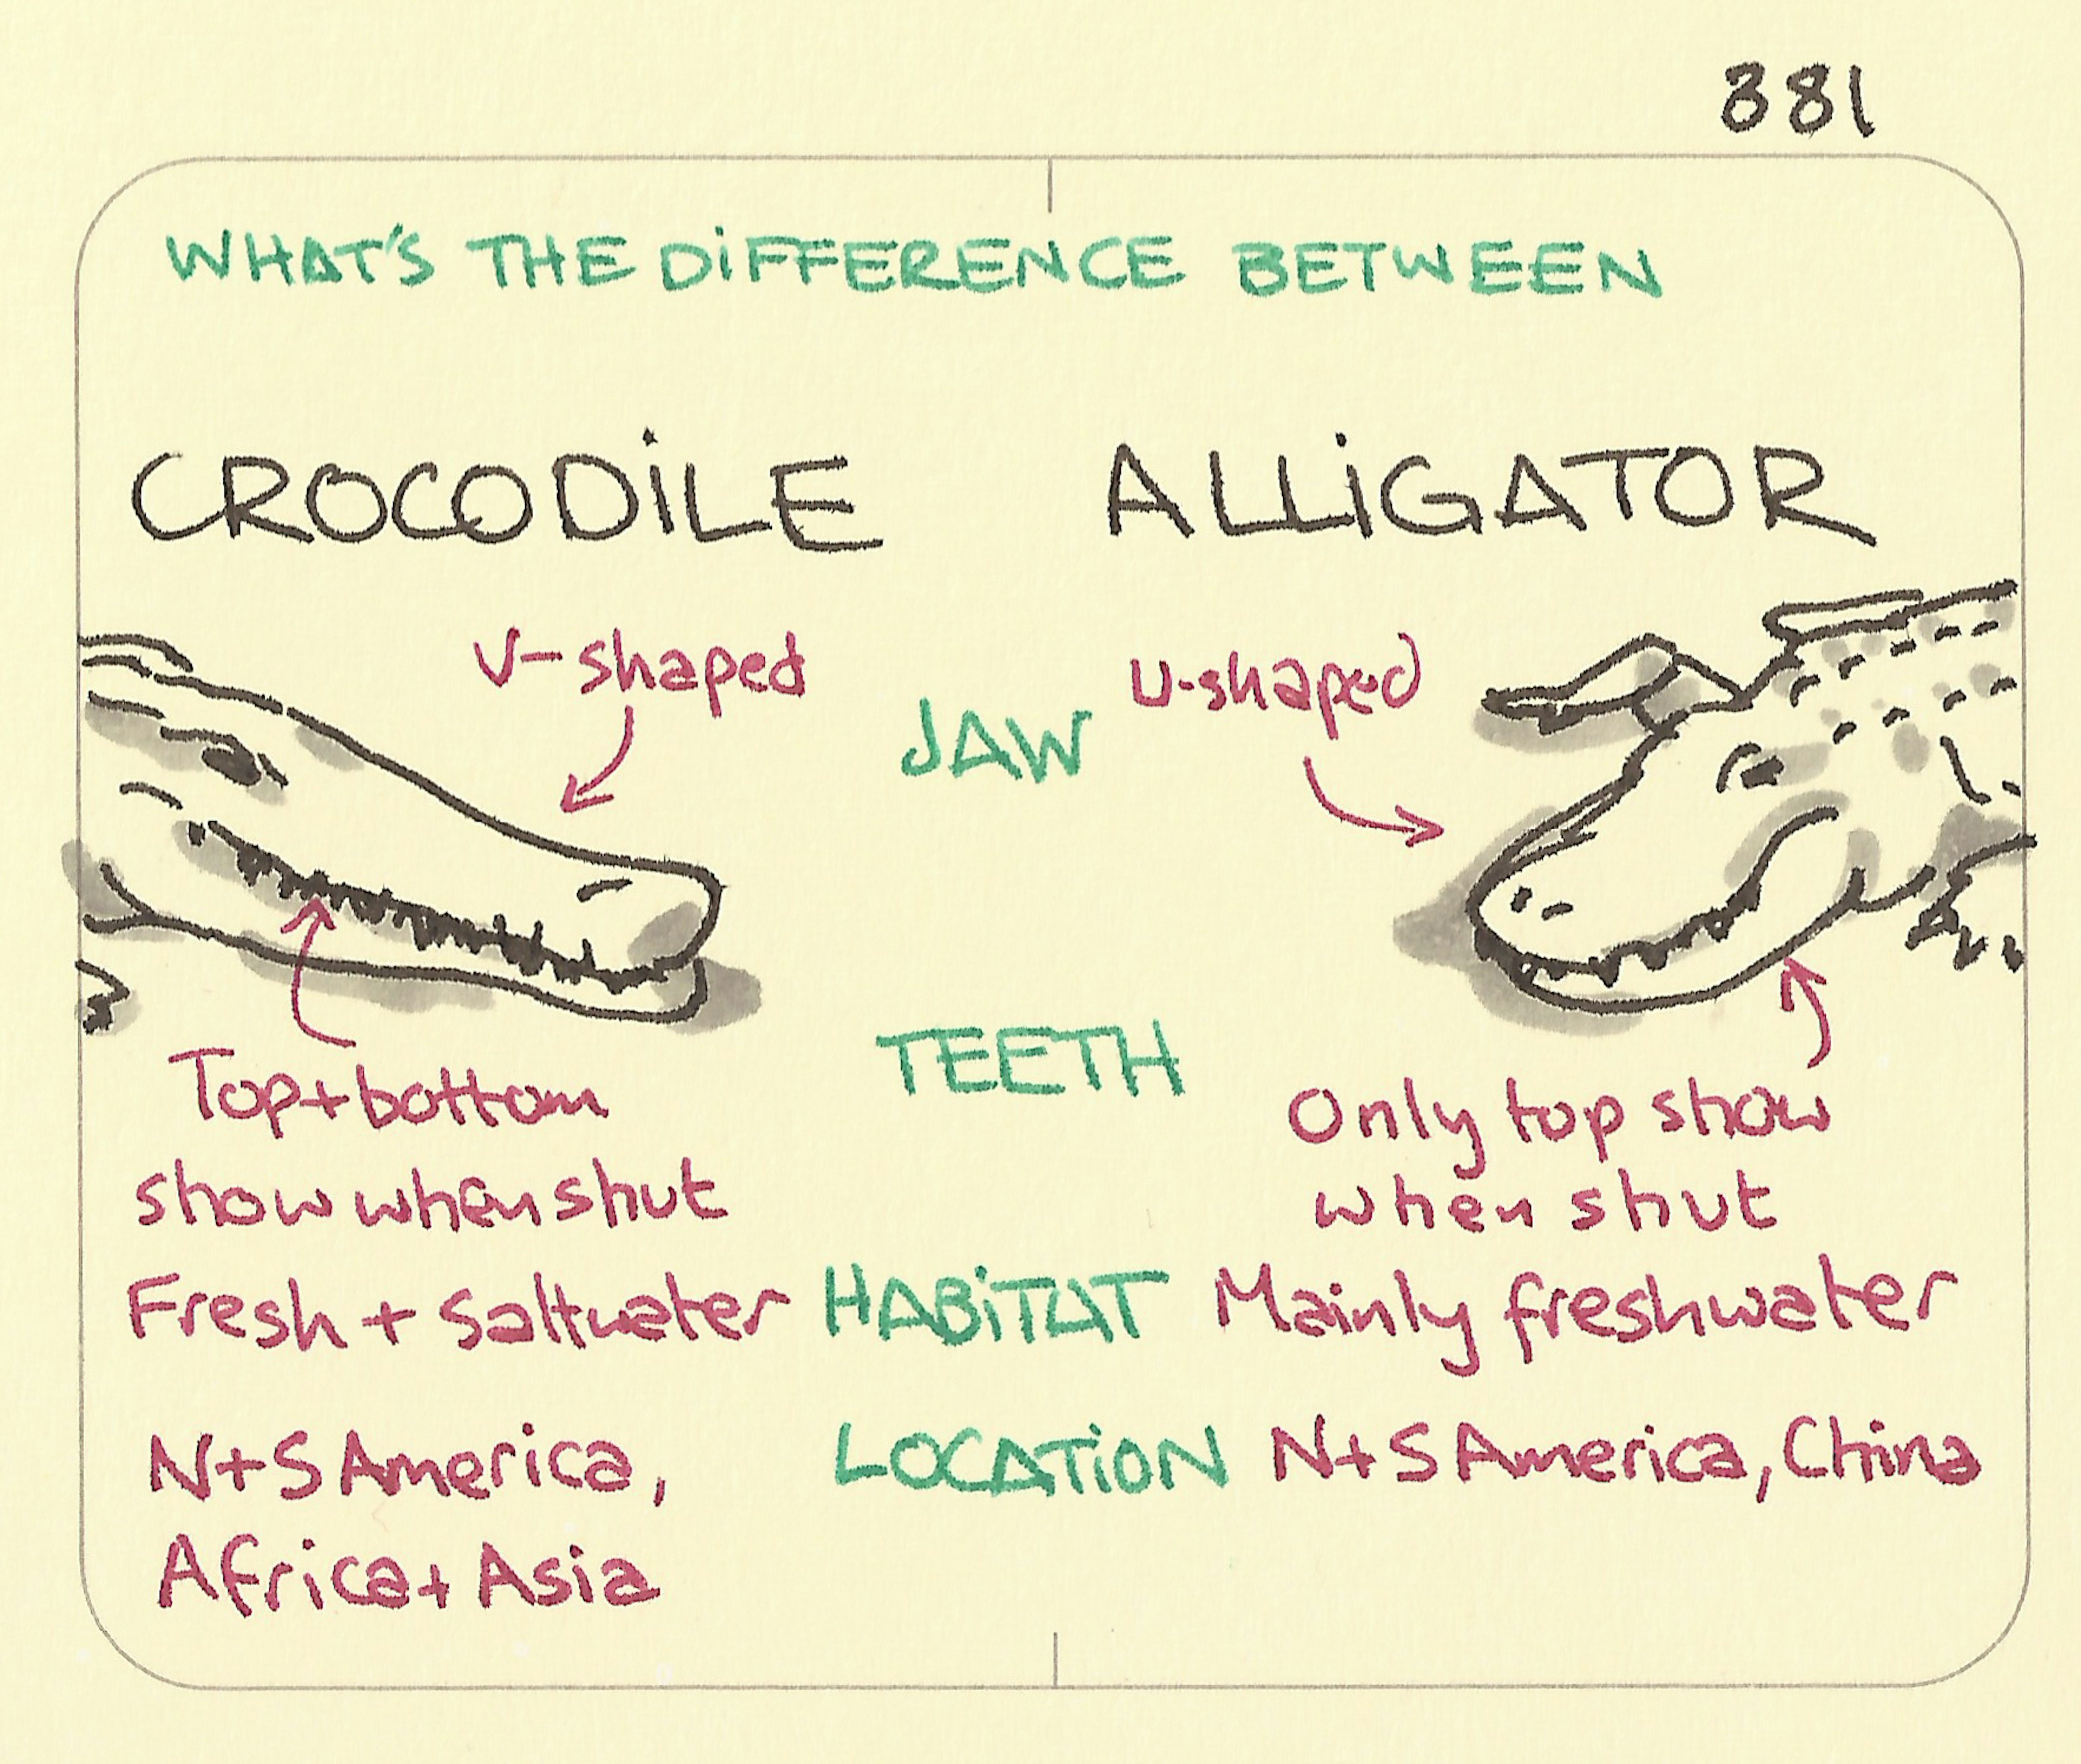 381
WHAT'S THE DIFFERENCE BETWEEN
CROCODILE ALLIGATOR
V-shaped JAW U-shaped
TEETH
Top+bottom
show when shut
Only top show
when shut
Fresh + Saltwater HABITAT Mainly freshwater
N+S America,
Africa+ Asia
LOCATION N+S America, China